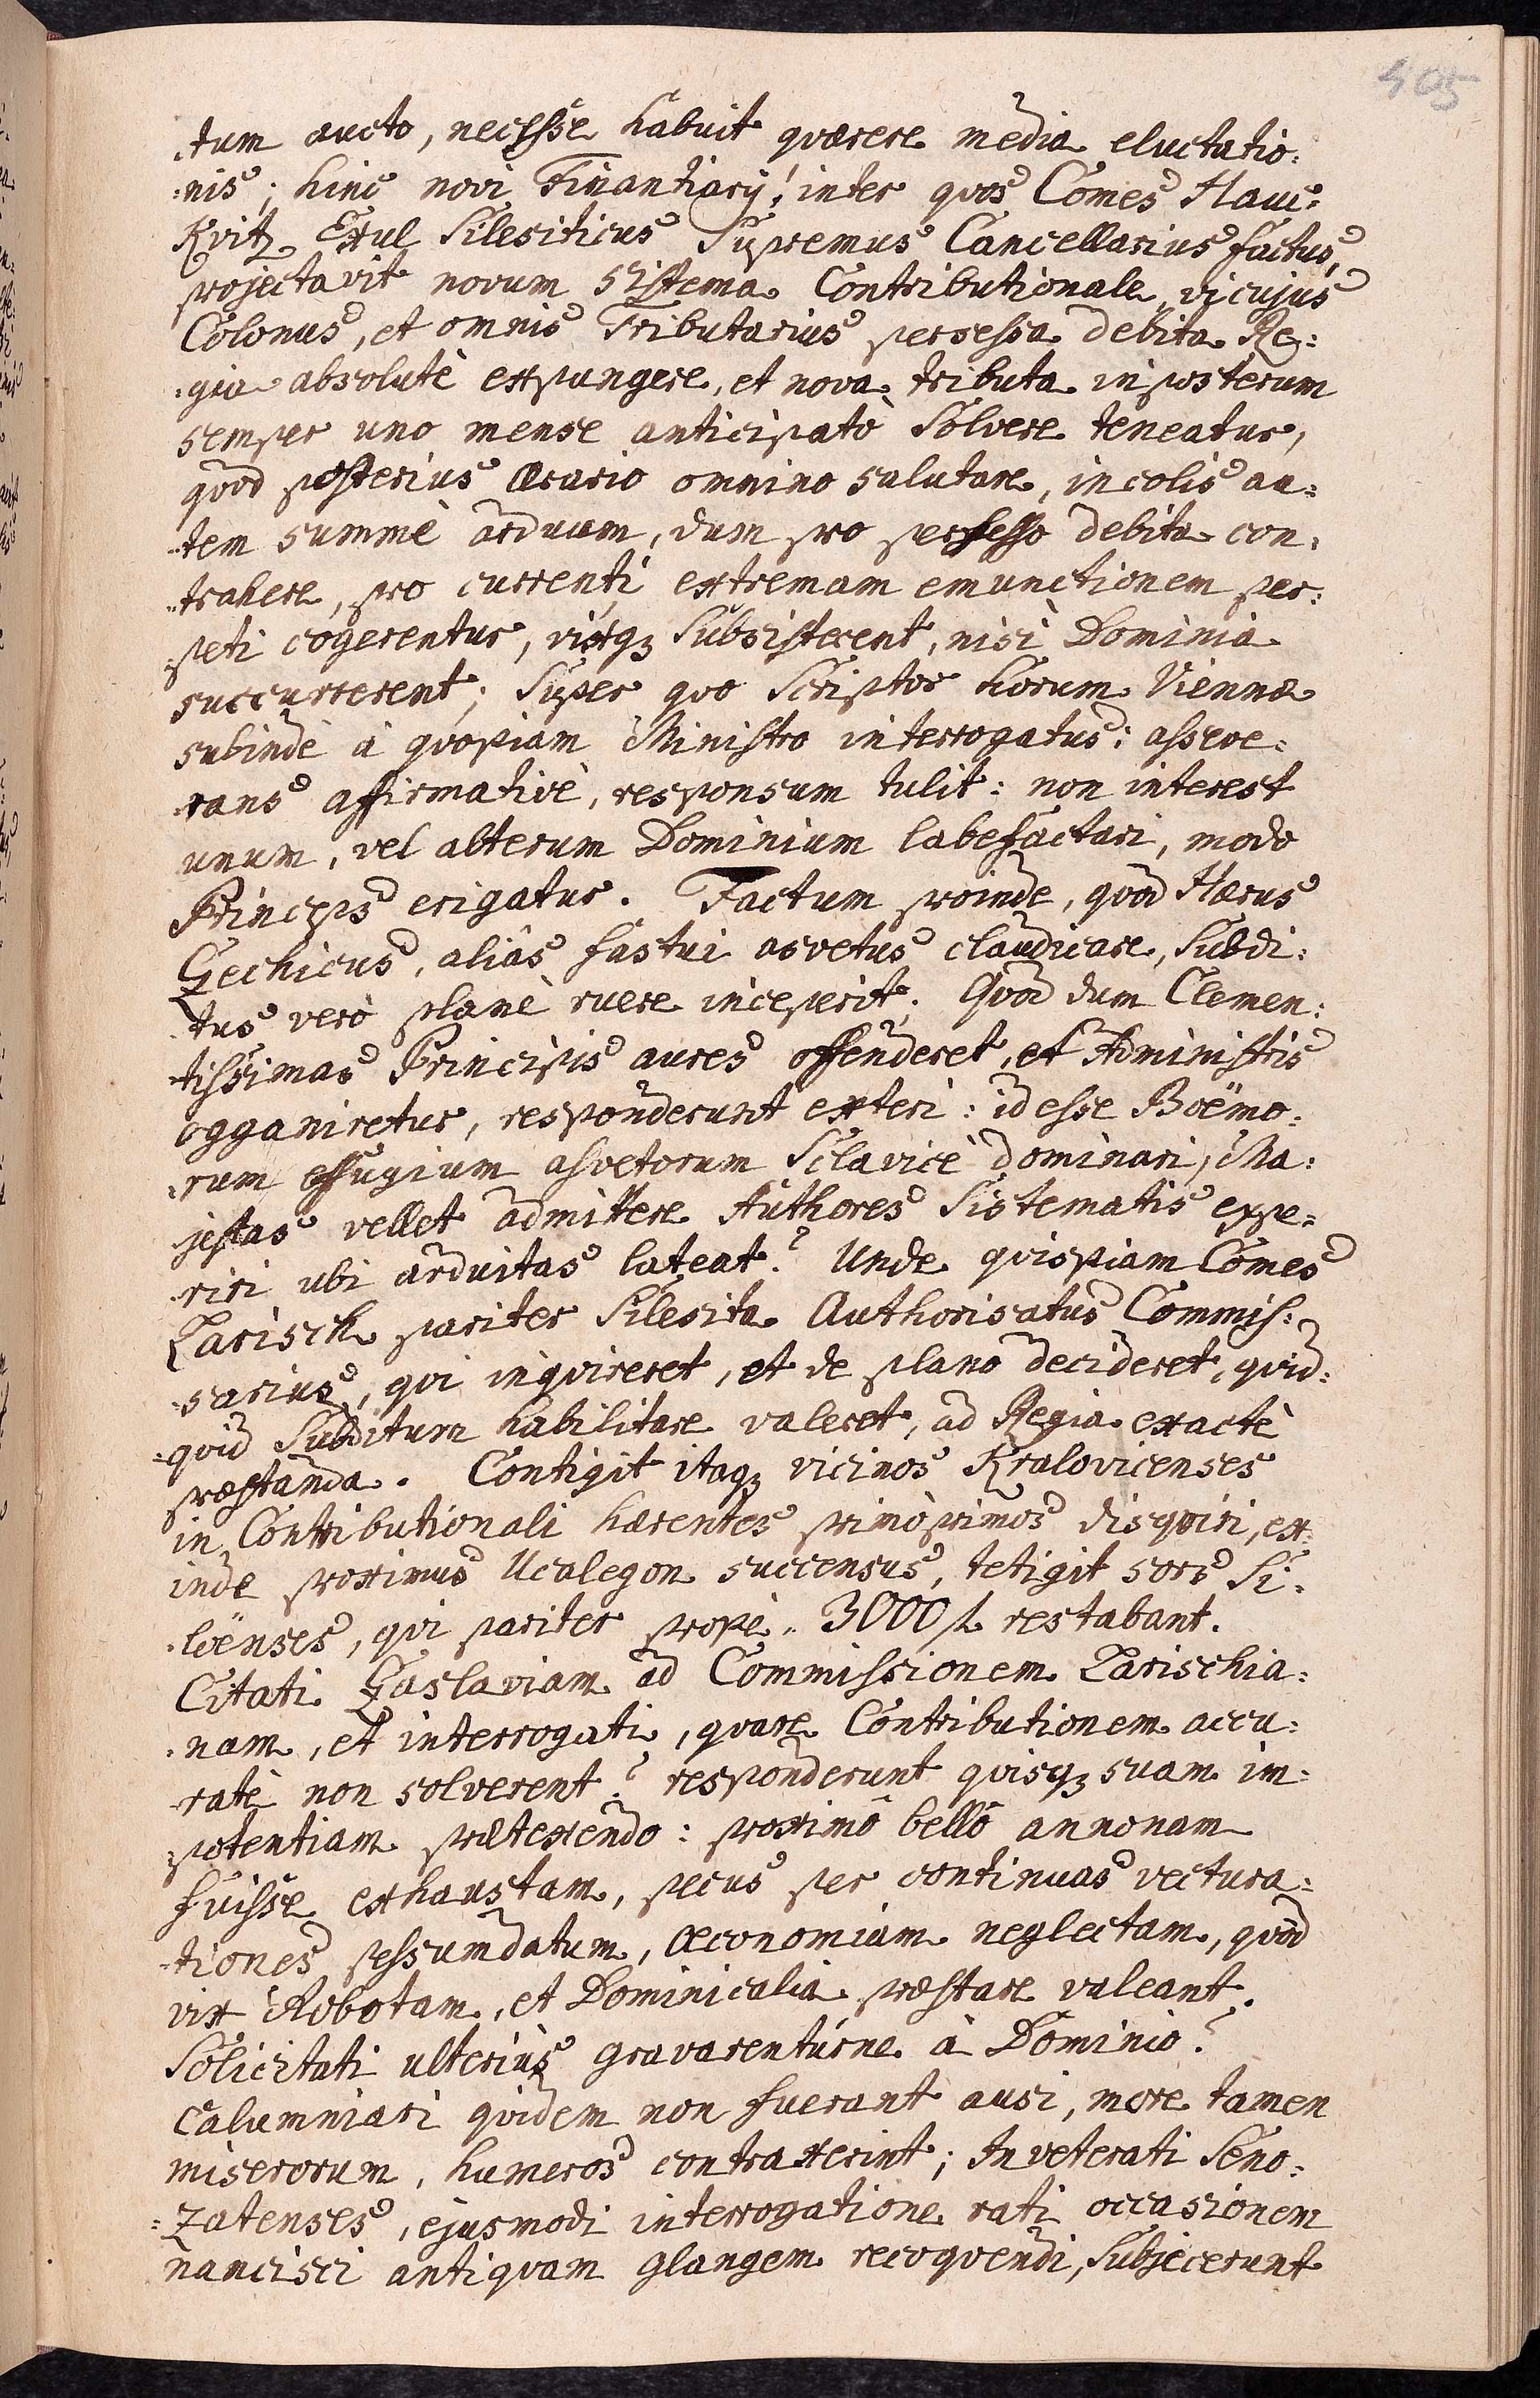 405
tum aucto, necesse habuit quærere media eluctatio:
:nis; hinc novi Finantiarÿ! inter quos Comes Hauc:
Kvitz Exul Silesiticus Supremus Cancellarius factus,
projectavit novum Sistema Contributionale, vi cujus
Colonus, et omnis Tributarius persessa debita Re:
:gia absolutè expungere, et nova tributa in posterum
semper uno mense anticipatò Solvere teneatur,
quod posterius ærario omnino salutare, incolis au:
tem summè arduum, dum pro persesso debita con:
trahere, pro currenti extremam emunctionem per:
peti cogerentur, vixq3 Subsisterent, nisi Dominia
succurrerent; Super quo Scriptor horum Viennæ
subinde à quopiam Ministro interrogatus: asseve:
rans affirmativè, responsum tulit: non interest
unum, vel alterum Dominium labefactari, modo
Princeps erigatur. Factum proinde, quod Hærus
Czechicus, aliàs fastui asvetus claudicare, Subdi:
tus verò planè ruere inceperit. Quod dum Clemen:
tissimas Principis aures offenderet, et Administris
ogganiretur, responderunt exteri: id esse Boëmo:
rum effugium asvetorum Sclavicè dominari, Ma:
jestas vellet admittere Authores Sistematis expe:
riri ubi arduitas lateat? Unde quispiam Comes
Larisch pariter Silesita Authorisatus Commis:
sarius, qui inquireret, et de plano decideret, quid:
quid Subditum habilitare valeret, ad Regia exactè
præstanda. Contigit itaq3 vicinos Kralovicenses
in Contributionali hærentes primò primos disquiri, ex:
inde proximus Ucalegon succensus, tetigit sors Si:
:loënses, qui pariter propè 3000 f. restabant.
Citati Czaslaviam ad Commissionem Larischia:
:nam, et interrogati, quare Contributionem accu:
ratè non solverent? responderunt quisq3 suam im:
potentiam prætexendo: proximô bellô annonam
fuisse exhaustam, pecus per continuas vectura:
tiones pessumdatum, œconomiam neglectam, quod
vix Robotam, et Dominicalia præstare valeant.
Solicitati ulteriùs gravarenturne à Dominio?
calumniari quidem non fuerant ausi, more tamen
miserorum, humeros contraxerint; Inveterati Seno:
:zatenses, ejusmodi interrogatione rati occasionem
nancisci antiquam glangem recoquendi, Subjecerunt